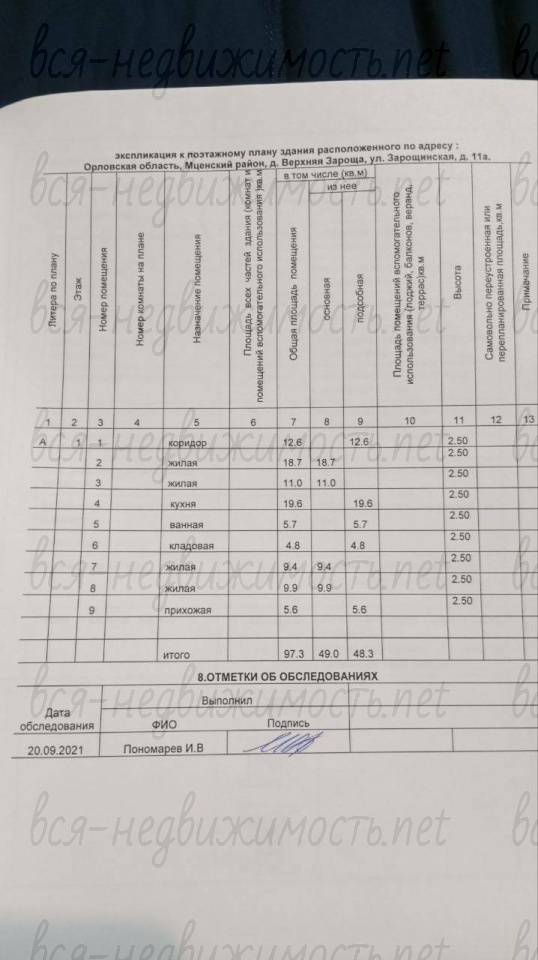 вся-недвижимость.net
экспликация к поэтажному плану здания расположенного по адресу :
Орловская область, Мценский район, д. Верхняя Зароща, ул. Зарощинская, д. 11а.
Литера по плану
Этаж
Номер помещения
Номер комнаты на плане
Назначение помещения
Площадь всех частей здания (комнат и помещений вспомогательного использования )кв.м
в том числе (кв.м)
Общая площадь помещения
из нее
основная
подсобная
Площадь помещений вспомогательного использования (лоджий, балконов, веранд, террас)кв.м
Высота
Самовольно переустроенная или перепланированная площадь,кв.м
Примечание
1 2 3 4 5 6 7 8 9 10 11 12 13
А 1 1 коридор 12.6 12.6 2.50
2 жилая 18.7 18.7 2.50
3 жилая 11.0 11.0 2.50
4 кухня 19.6 19.6 2.50
5 ванная 5.7 5.7 2.50
6 кладовая 4.8 4.8 2.50
7 жилая 9.4 9.4 2.50
8 жилая 9.9 9.9 2.50
9 прихожая 5.6 5.6 2.50
итого 97.3 49.0 48.3
8.ОТМЕТКИ ОБ ОБСЛЕДОВАНИЯХ
Дата обследования
Выполнил
ФИО Подпись
20.09.2021 Пономарев И.В
вся-недвижимость.net
вся-недвижимость.net